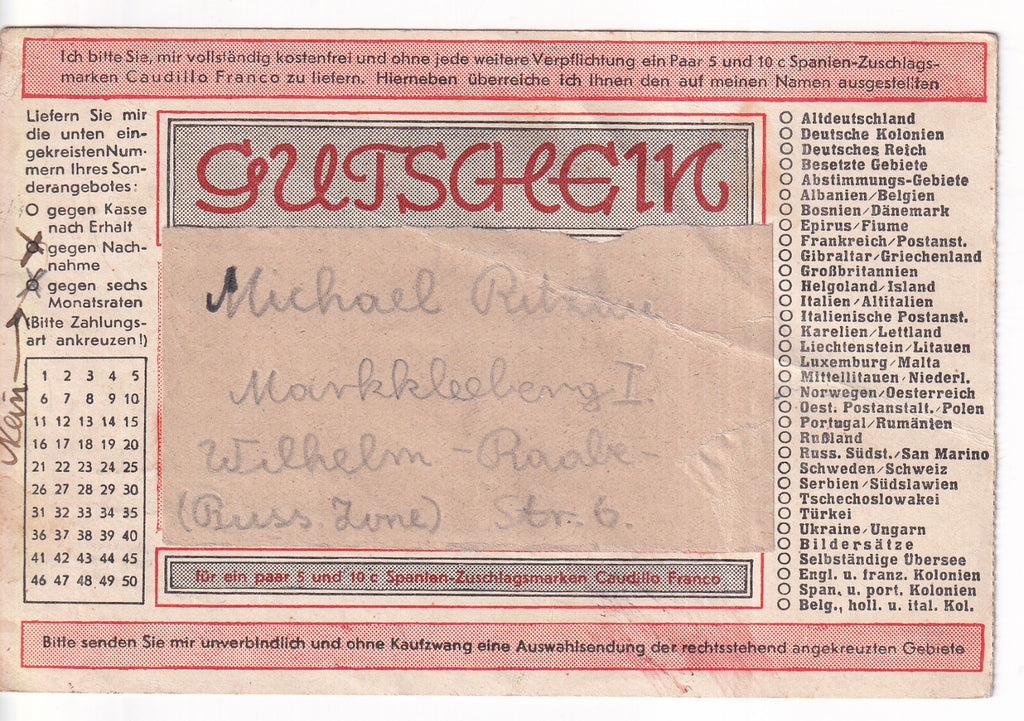 Ich bitte Sie, mir vollständig kostenfrei und ohne jede weitere Verpflichtung ein Paar 5 und 10 c Spanien-Zuschlags-
marken Caudillo Franco zu liefern. Hierneben überreiche ich Ihnen den auf meinen Namen ausgestellten
Liefern Sie mir
die unten ein-
gekreisten Num-
mern Ihres Son-
derangebotes:
gegen Kasse
nach Erhalt
gegen Nach-
nahme
gegen sechs
Monatsraten
(Bitte Zahlungs-
art ankreuzen!)
Nein
1 2 3 4 5
6 7 8 9 10
11 12 13 14 15
16 17 18 19 20
21 22 23 24 25
26 27 28 29 30
31 32 33 34 35
36 37 38 39 40
41 42 43 44 45
46 47 48 49 50
GUTSCHEIN
Michael
Markkleeberg I.
Wilhelm-Raabe-
(Russ. Zone) Str. 6.
für ein paar 5 und 10 c Spanien-Zuschlagsmarken Caudillo Franco
Altdeutschland
Deutsche Kolonien
Deutsches Reich
Besetzte Gebiete
Abstimmungs-Gebiete
Albanien/Belgien
Bosnien/Dänemark
Epirus/Fiume
Frankreich/Postanst.
Gibraltar/Griechenland
Großbritannien
Helgoland/Island
Italien/Altitalien
Italienische Postanst.
Karelien/Lettland
Liechtenstein/Litauen
Luxemburg/Malta
Mittellitauen/Niederl.
Norwegen/Oesterreich
Oest. Postanstalt./Polen
Portugal/Rumänien
Rußland
Russ. Südst./San Marino
Schweden/Schweiz
Serbien/Südslawien
Tschechoslowakei
Türkei
Ukraine/Ungarn
Bildersätze
Selbständige Übersee
Engl. u. franz. Kolonien
Span. u. port. Kolonien
Belg., holl. u. ital. Kol.
Bitte senden Sie mir unverbindlich und ohne Kaufzwang eine Auswahlsendung der rechtsstehend angekreuzten Gebiete